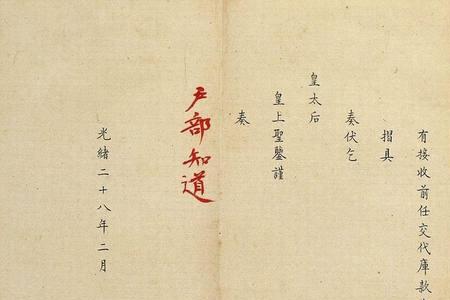 有接收前任交代庫款
摺具
奏伏乞
皇太后
皇上聖鑒謹
奏
戶部知道
光緒二十八年二月